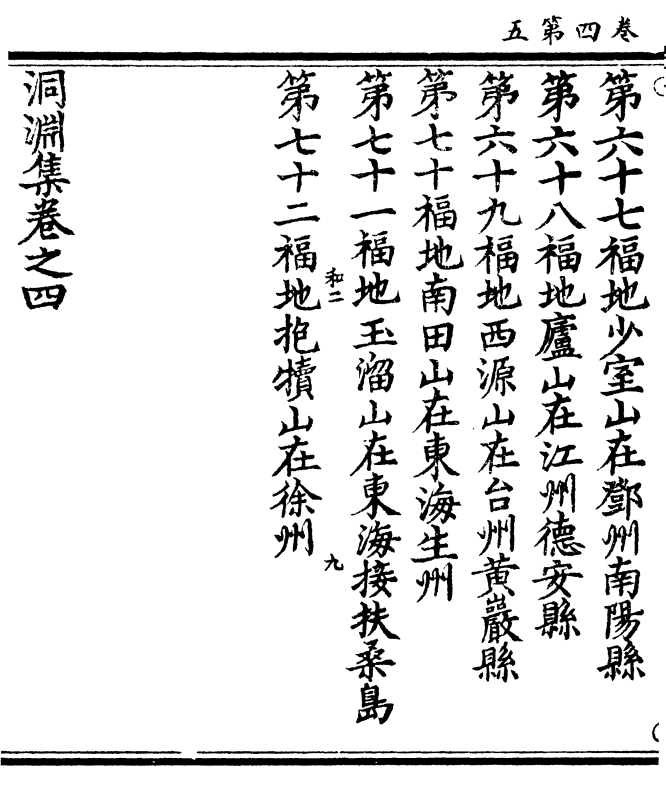 卷四第五
第六十七福地少室山在鄧州南陽縣
第六十八福地廬山在江州德安縣
第六十九福地西源山在台州黃巖縣
第七十福地南田山在東海生州
第七十一福地玉溜山在東海接扶桑島
和二
九
第七十二福地抱犢山在徐州
洞淵集卷之四